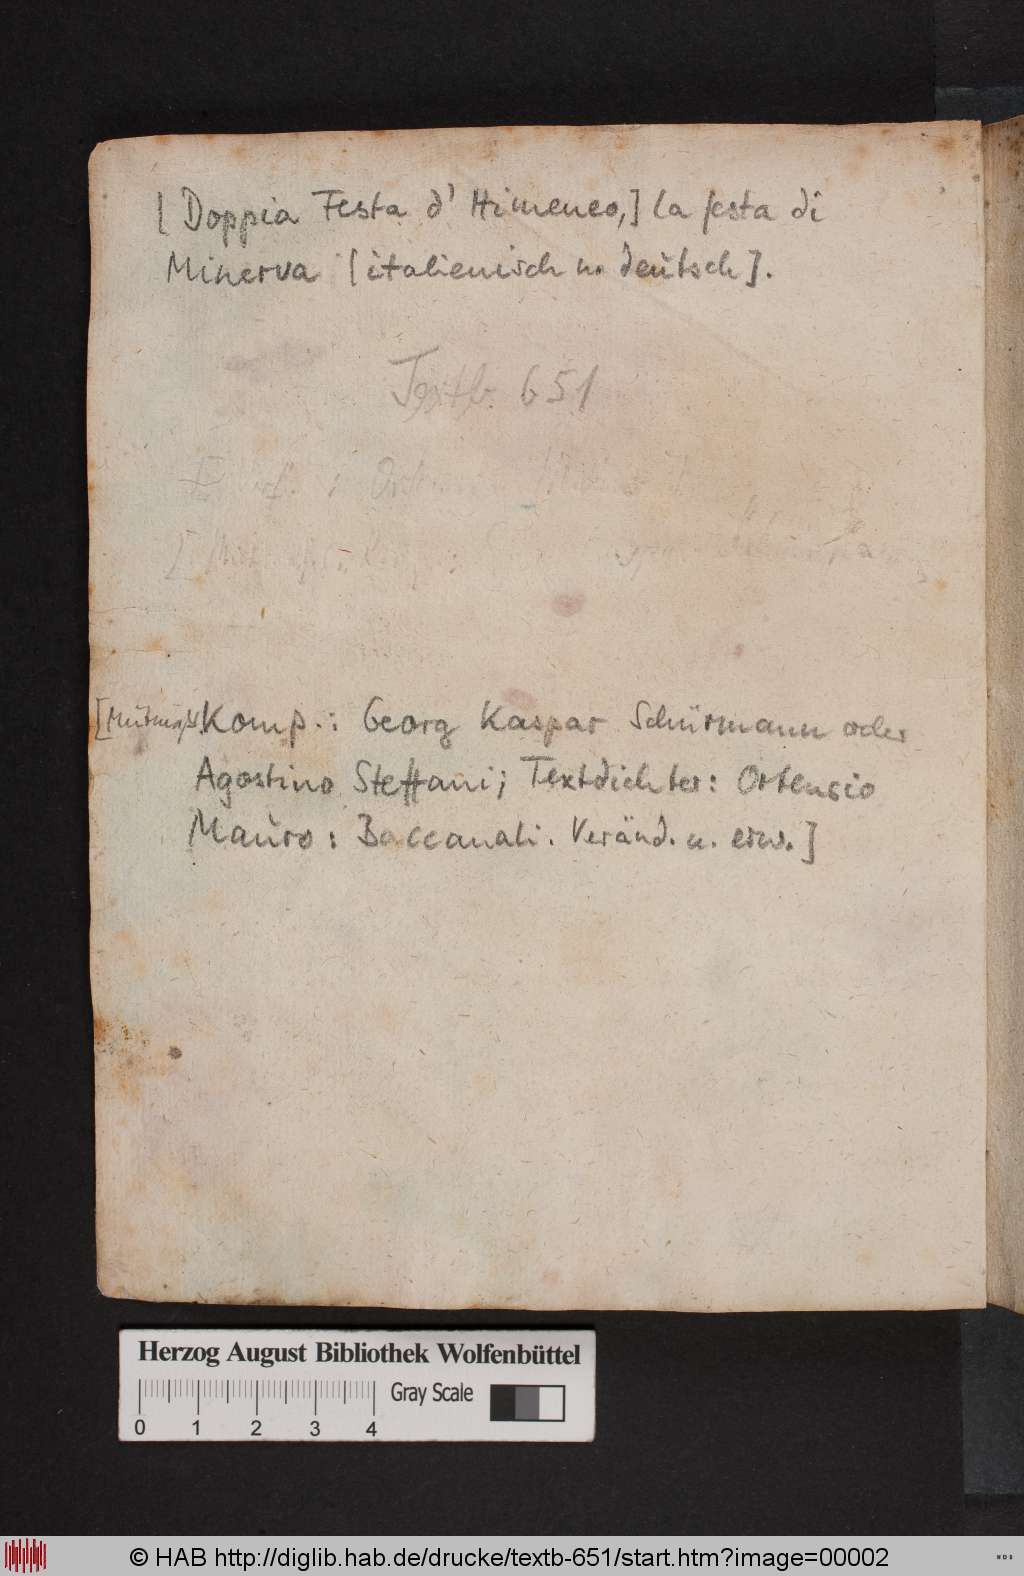 [Doppia Festa d' Himeneo,] la festa di
Minerva [italienisch u. deutsch].
Textb. 651
[Mutmaßl. Komp.: Georg Kaspar Schürmann oder
Agostino Steffani; Textdichter: Ortensio
Mauro: Baccanali. Veränd. u. erw.]
Herzog August Bibliothek Wolfenbüttel
Gray Scale
0 1 2 3 4
© HAB http://diglib.hab.de/drucke/textb-651/start.htm?image=00002